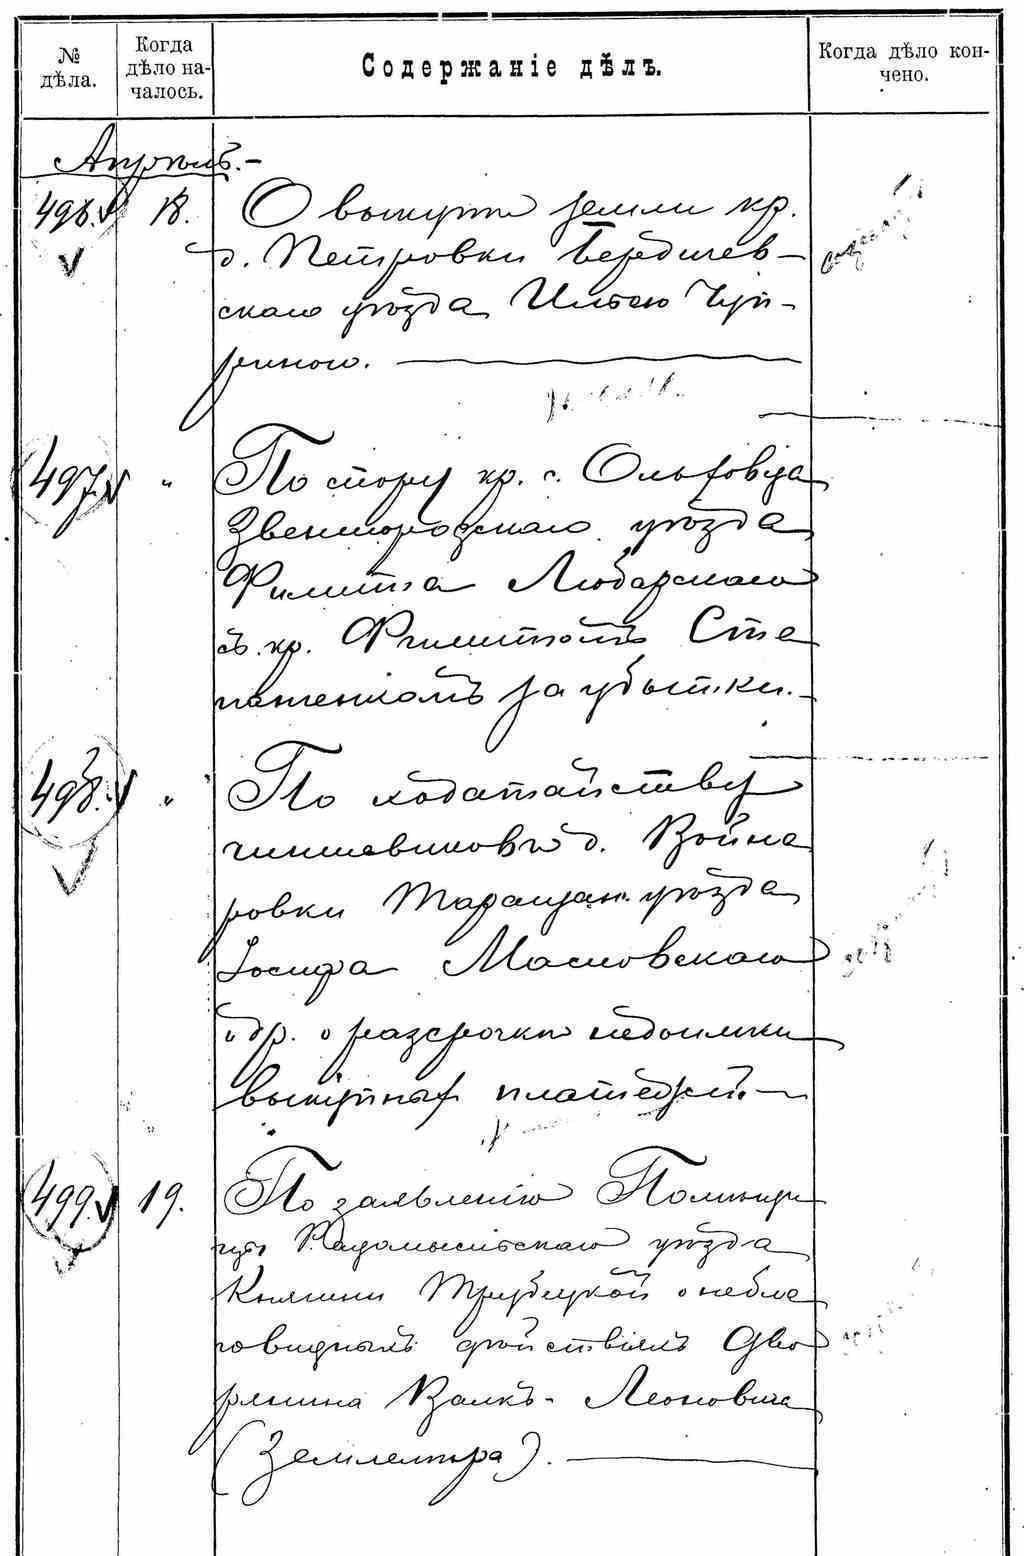 № дѣла.
Когда дѣло на-
чалось.
Содержаніе дѣлъ.
Когда дѣло кон-
чено.
Апрѣль.-
496. 18. О выкупѣ земли кр.
д. Петровки Бердичев-
скаго уѣзда Ильею Чуп-
риною.
497. „ По спору кр. с. Ольховца
Звенигородскаго уѣзда
Филиппа Любарскаго
съ кр. Филиппомъ Сте
паненкомъ за убытки.-
498. „ По ходатайству
чиншевиковъ д. Война
ровки Таращан. уѣзда
Іосифа Масловскаго
и др. о разсрочкѣ недоимки
выкупныхъ платежей.-
499. 19. По заявленію Помѣщи
цы Радомысльскаго уѣзда
Княгини Трубецкой о небла
говидныхъ дѣйствіяхъ Дво
рянина Валкъ-Леоновича
(Землемѣра).